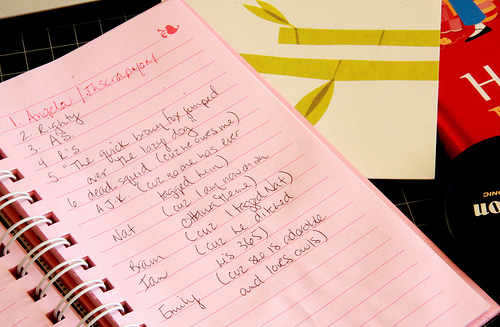 1 Angela /
2. Righty
3. A's
4 R's
5 "The quick brown fox jumped
over the lazy dog"
6 dead squid (cuz he owes me)
A.J.K. (cuz no one has ever
tagged him)
Nat (cuz I am now on
Ottawa Time)
Bram (cuz I tagged Nat)
Ian (cuz he ditched
his 365)
Emily (cuz she is adorable
and loves owls)
H